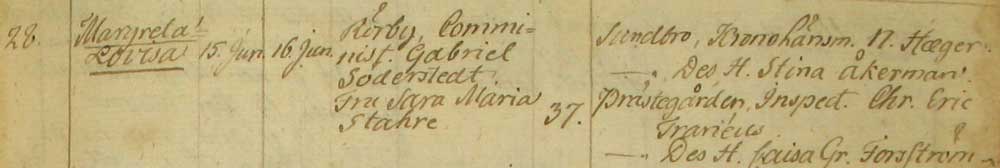 28. Margreta Lovisa 15. Jun. 16. Jun.
Rörby, Commi-
nist. Gabriel
Söderstedt.
Fru Sara Maria
Stahre
37.
Sundbro, Kronohänsm. N. Hæger.
—. Des H. Stina Åkerman.
Prästegården, Inspect. Chr. Eric
—. Des H. Caisa Gr. Forsström